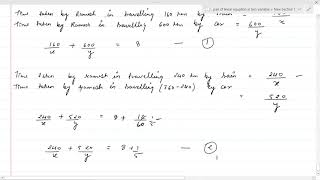 pair of linear equation in two variable
Time taken by Ramesh in travelling 160 km by train =
Time taken by Ramesh in travelling 600 km by car = 600/y
160/x + 600/y = 8 — (1)
Time taken by ramesh in travelling 240 km by train = 240/x
Time taken by ramesh in travelling (760-240) by car = 520/y
240/x + 520/y = 8 + 12/60
240/x + 520/y = 8 + 1/5 — (2)